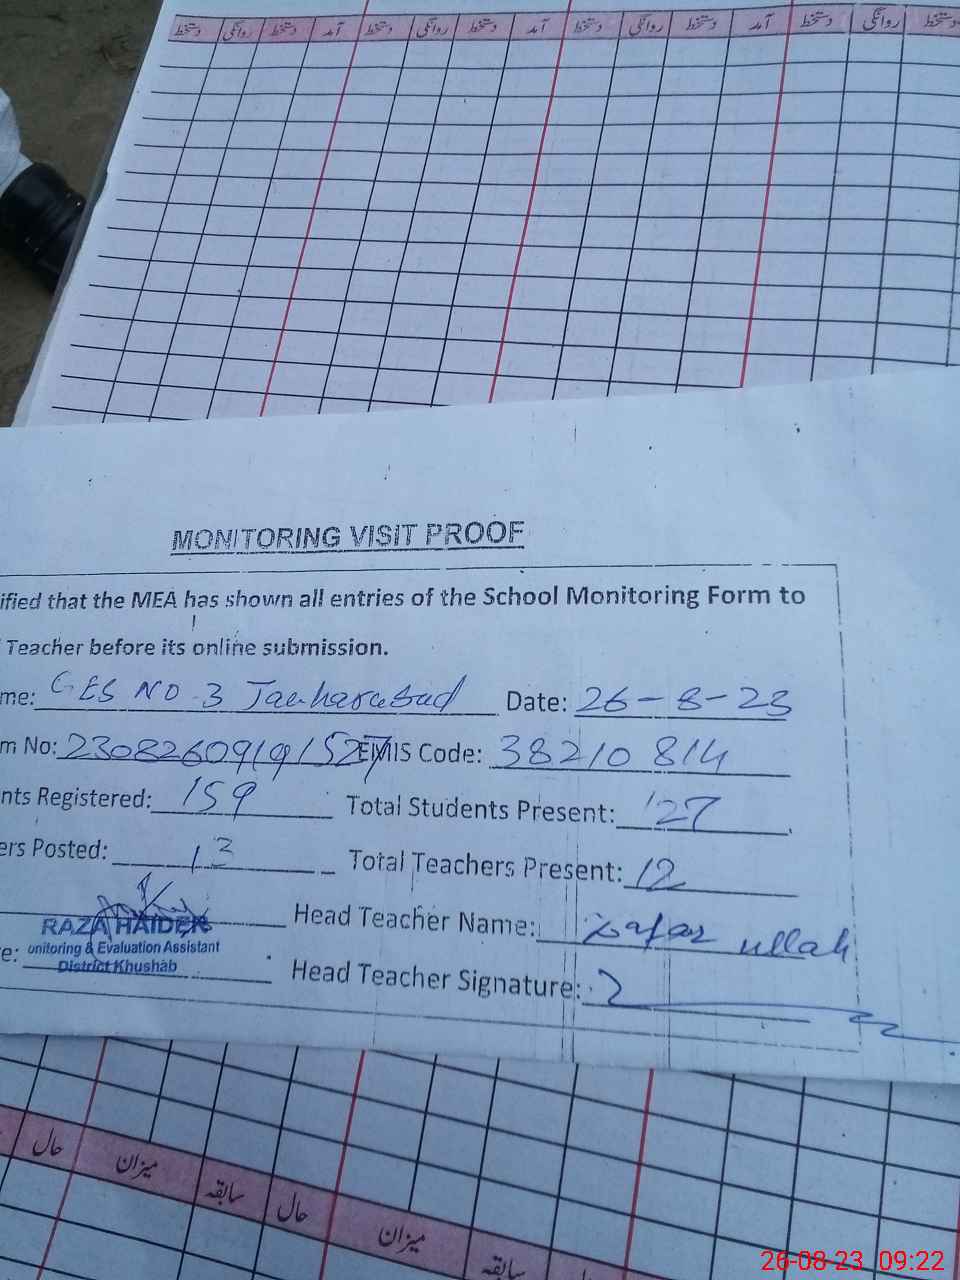 دستخط روانگی دستخط آمد دستخط روانگی دستخط آمد دستخط روانگی دستخط آمد دستخط روانگی دستخط
MONITORING VISIT PROOF
ified that the MEA has shown all entries of the School Monitoring Form to
Teacher before its online submission.
me: GES NO 3 Jauharabad Date: 26-8-23
m No: EMIS Code: 38210814
nts Registered: 159 Total Students Present: 127
ers Posted: 13 Total Teachers Present: 12
Head Teacher Name: Zafar ullah
RAZA HAIDER
onitoring & Evaluation Assistant
District Khushab
e: Head Teacher Signature:
حال میزان سابقہ حال میزان سابقہ
26-08-23 09:22